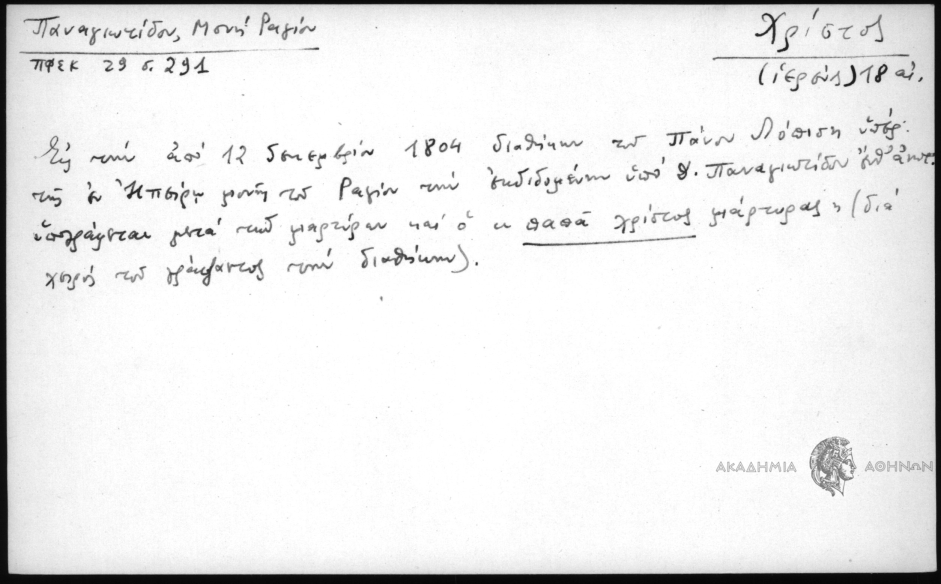 Παναγιωτίδου, Μονή Ραγίου
Χρίστος
ΠΦΕΚ 29 σ. 291
(ἱερεύς) 18 αἰ.
Εἰς τὴν ἀπό 12 Δεκεμβρίου 1804 διαθήκην τοῦ Πάνου ὑπέρ
τῆς ἐν Ἠπείρῳ μονῆς τοῦ Ραγίου τὴν ἐκδιδομένην ὑπό Παναγιωτίδου ἔνθ' ἀνωτ.
ὑπογράφεται μετά τῶν μαρτύρων καί ὁ « παπᾶ χρίστος μιάρτυρας » (διά
χειρός τοῦ γράψαντος τὴν διαθήκην).
ΑΚΑΔΗΜΙΑ ΑΘΗΝΩΝ